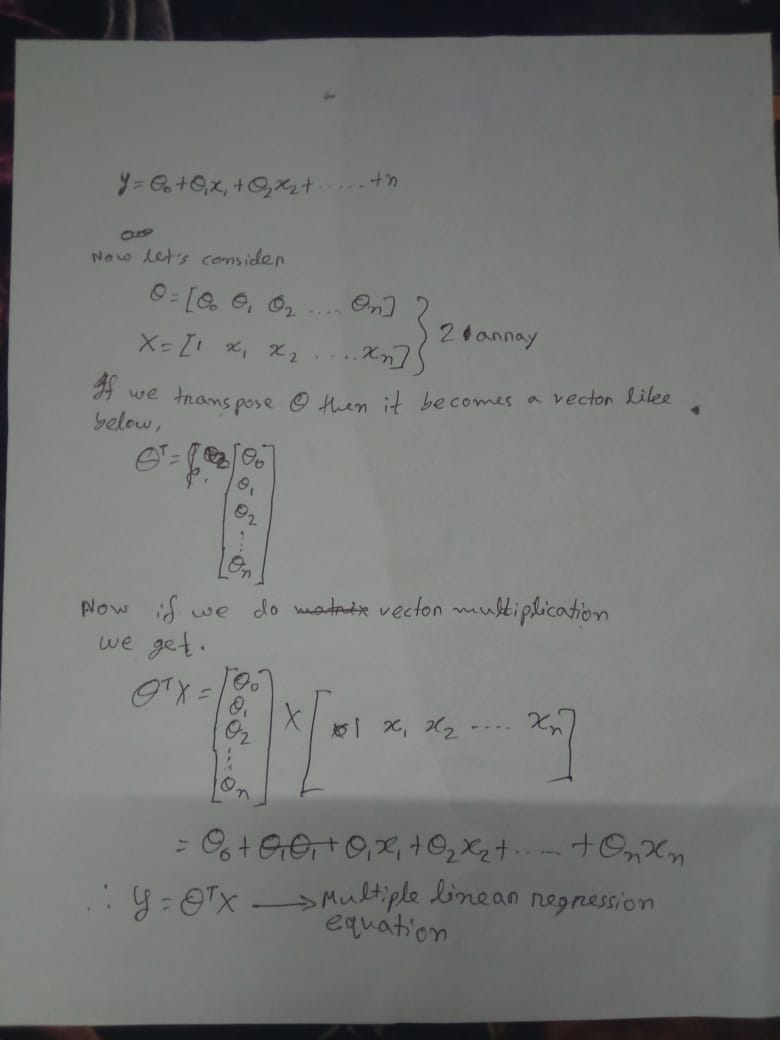 y = θ₀ + θ₁x₁ + θ₂x₂ + ...... + n
Now let's consider
θ = [θ₀ θ₁ θ₂ .... θₙ]
X = [1 x₁ x₂ ..... xₙ] } 2 array
If we transpose θ then it becomes a vector like
below,
θᵀ = [θ₀
θ₁
θ₂
....
θₙ]
Now if we do matrix vector multiplication
we get.
θᵀX = [θ₀
θ₁
θ₂
....
θₙ] X [1 x₁ x₂ .... xₙ]
= θ₀ + θ₁θ₁ + θ₁x₁ + θ₂x₂ + ...... + θₙxₙ
∴ y = θᵀX → Multiple linear regression
equation